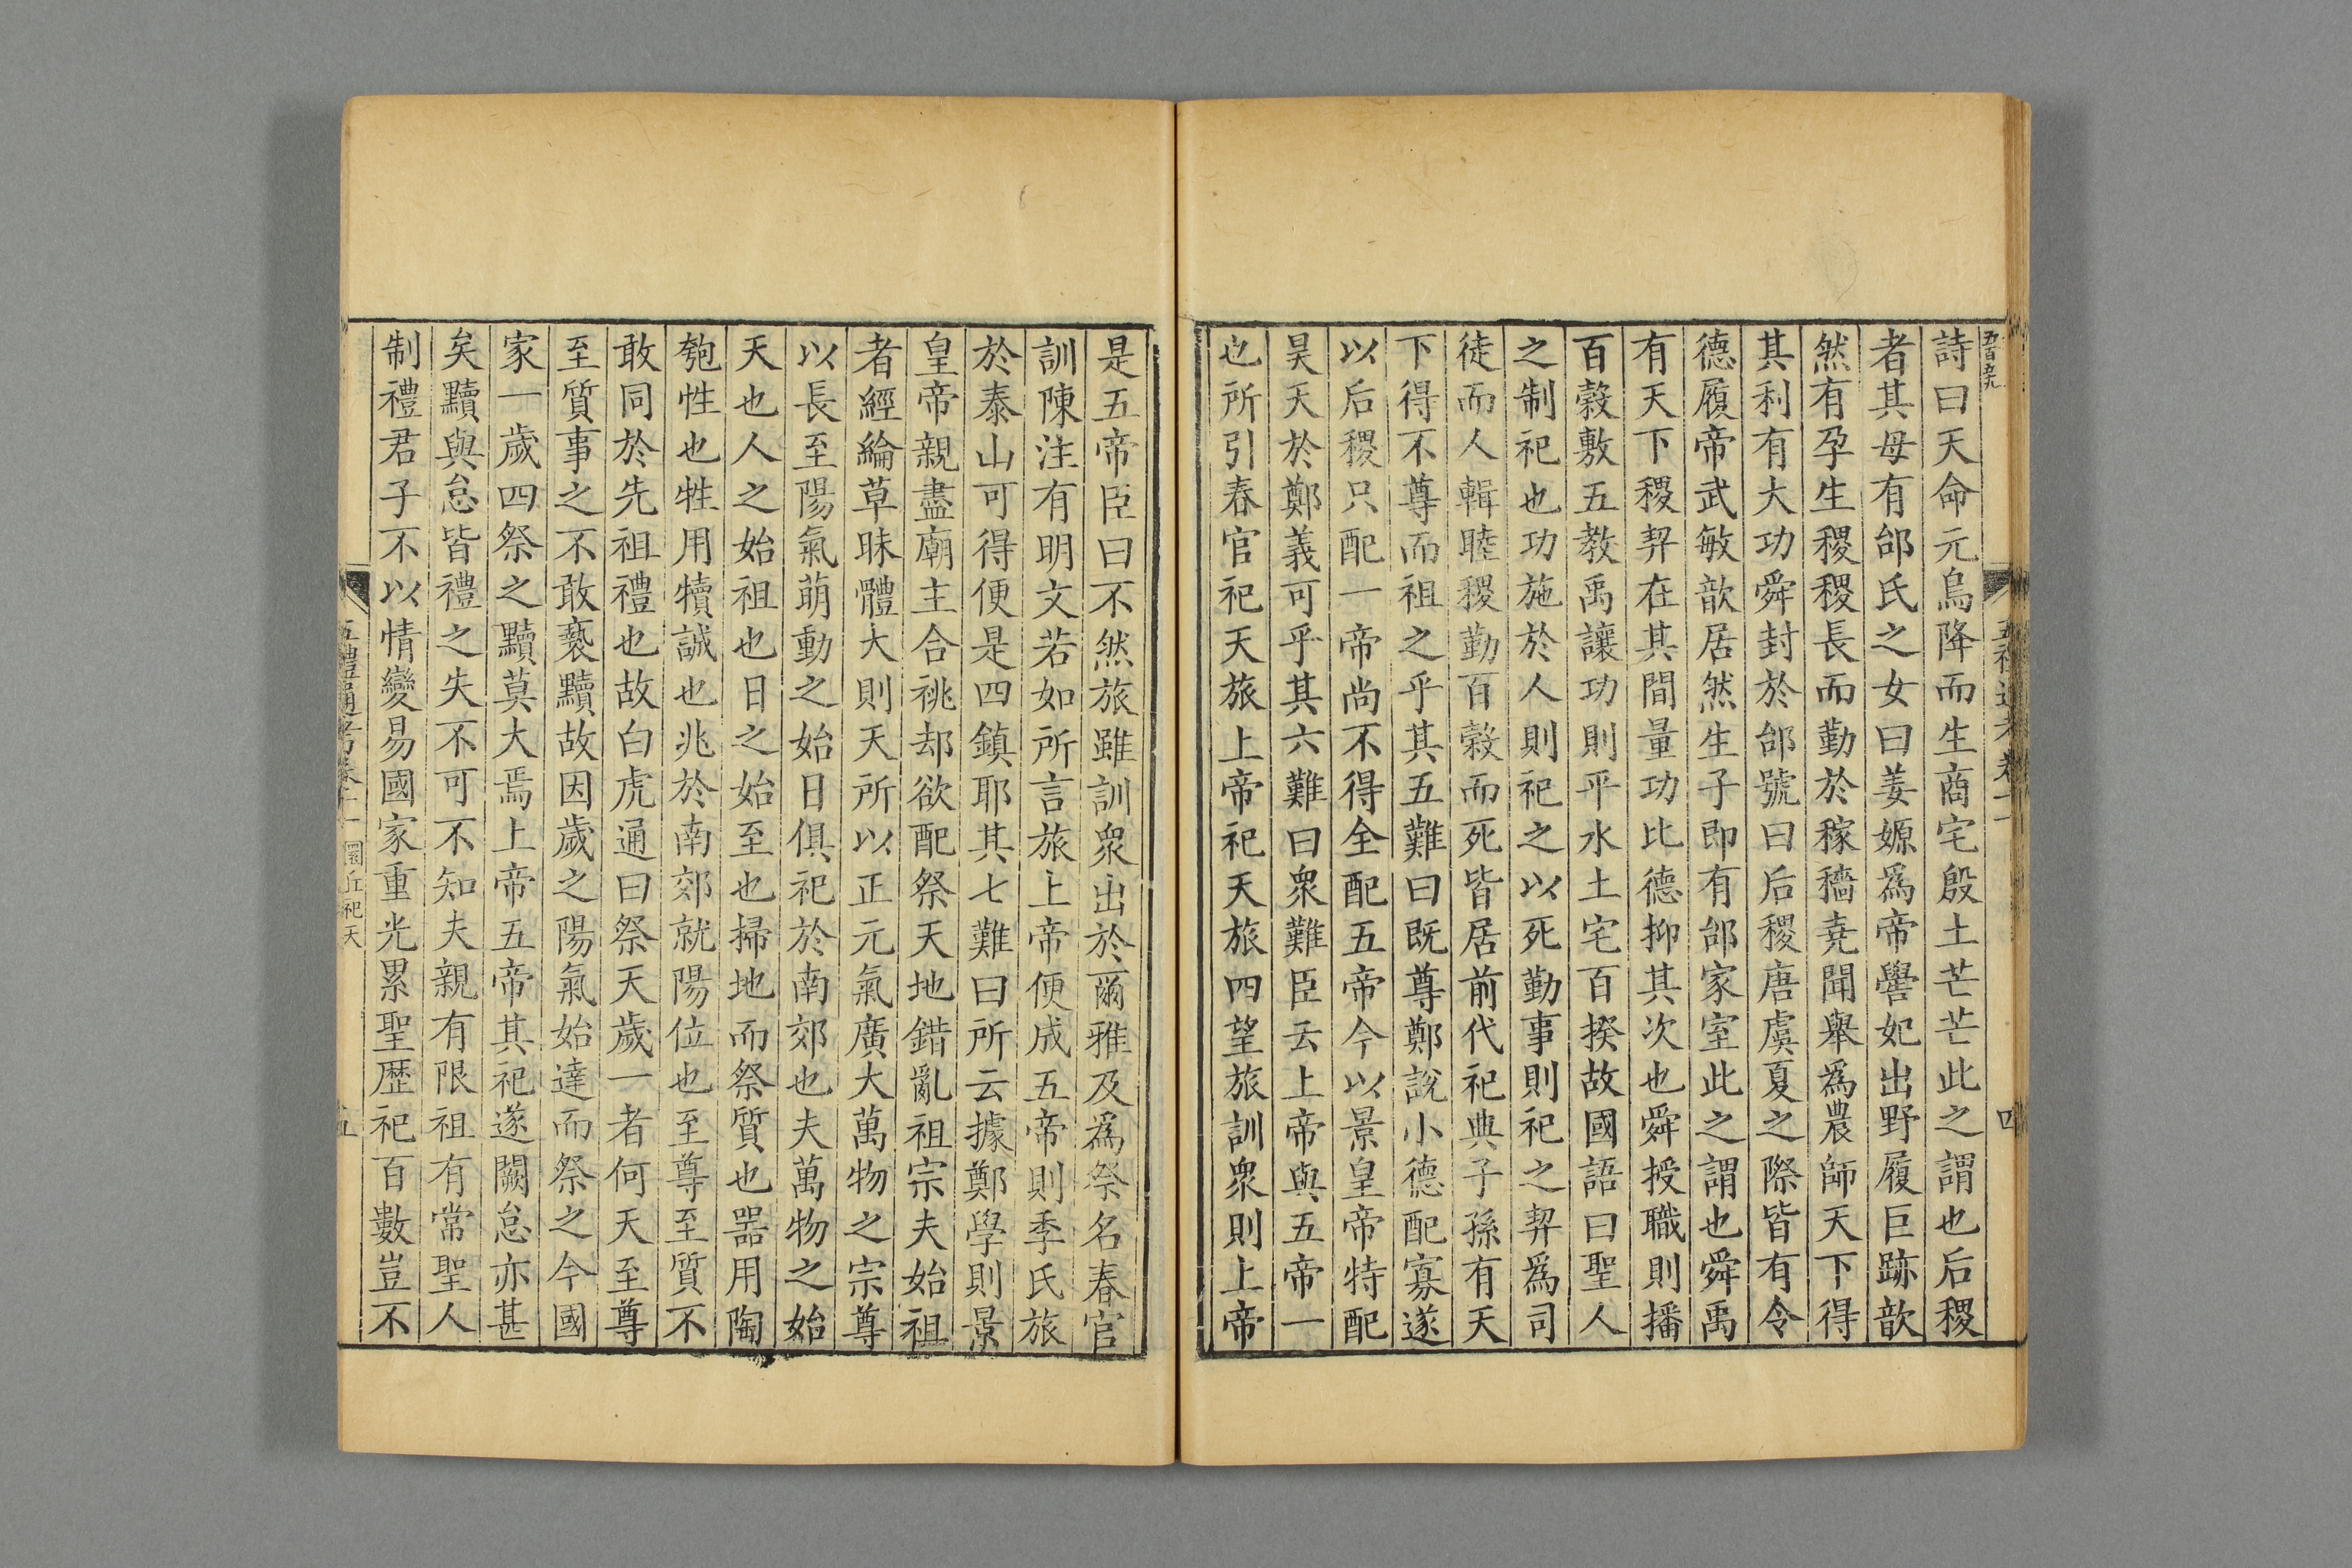 五百五九
五禮通考卷十一
四
詩曰天命元鳥降而生商宅殷土芒芒此之謂也后稷
者其母有邰氏之女曰姜嫄爲帝嚳妃出野履巨跡歆
然有孕生稷稷長而勤於稼穡堯聞舉爲農師天下得
其利有大功舜封於邰號曰后稷唐虞夏之際皆有令
德履帝武敏歆居然生子即有邰家室此之謂也舜禹
有天下稷契在其間量功比德抑其次也舜授職則播
百穀敷五教禹讓功則平水土宅百揆故國語曰聖人
之制祀也功施於人則祀之以死勤事則祀之契爲司
徒而人輯睦稷勤百穀而死皆居前代祀典子孫有天
下得不尊而祖之乎其五難曰既尊鄭說小德配寡遂
以后稷只配一帝尚不得全配五帝今以景皇帝特配
昊天於鄭義可乎其六難曰衆難臣云上帝與五帝一
也所引春官祀天旅上帝祀天旅四望旅訓衆則上帝
是五帝臣曰不然旅雖訓衆出於爾雅及爲祭名春官
訓陳注有明文若如所言旅上帝便成五帝則季氏旅
於泰山可得便是四鎮耶其七難曰所云據鄭學則景
皇帝親盡廟主合祧却欲配祭天地錯亂祖宗夫始祖
者經綸草昧體大則天所以正元氣廣大萬物之宗尊
以長至陽氣萌動之始日俱祀於南郊也夫萬物之始
天也人之始祖也日之始至也掃地而祭質也器用陶
匏性也牲用犢誠也兆於南郊就陽位也至尊至質不
敢同於先祖禮也故白虎通曰祭天歲一者何天至尊
至質事之不敢褻黷故因歲之陽氣始達而祭之今國
家一歲四祭之黷莫大焉上帝五帝其祀遂闕怠亦甚
矣黷與怠皆禮之失不可不知夫親有限祖有常聖人
制禮君子不以情變易國家重光累聖歷祀百數豈不
五禮通考卷十一 圜丘祀天
五